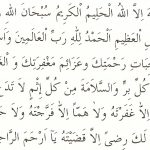 لَا اِلٰهَ اِلَّا اللّٰهُ الْحَلِيمُ الْكَرِيمُ سُبْحَانَ اللّٰهِ
الْعَظِيمِ اَلْحَمْدُ لِلّٰهِ رَبِّ الْعَالَمِينَ
مُوجِبَاتِ رَحْمَتِكَ وَعَزَائِمَ مَغْفِرَتِكَ وَالْ
كُلِّ بِرٍّ وَالسَّلَامَةَ مِنْ كُلِّ اِثْمٍ لَا تَدَعْ
اِلَّا غَفَرْتَهُ وَلَا هَمًّا اِلَّا فَرَّجْتَهُ وَلَا
لَكَ رِضًى اِلَّا قَضَيْتَهَا يَا اَرْحَمَ الرَّاحِ